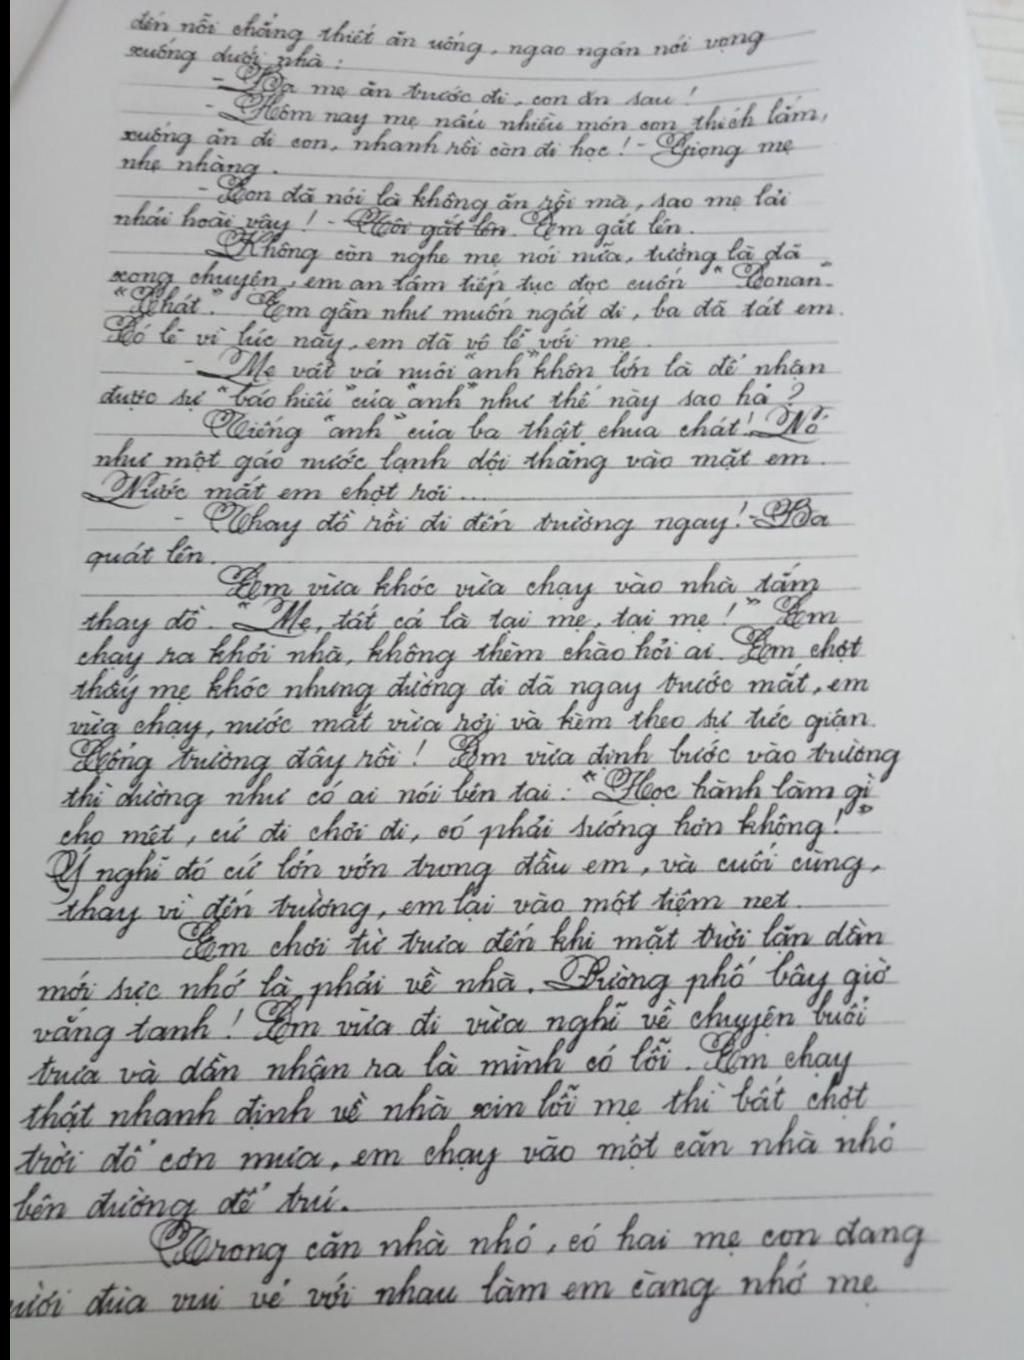 đến nỗi chẳng thiết ăn uống, ngao ngán nói vọng
xuống dưới nhà :
- Ba mẹ ăn trước đi, con ăn sau !
- Hôm nay mẹ nấu nhiều món con thích lắm,
xuống ăn đi con, nhanh rồi còn đi học ! - Giọng mẹ
nhẹ nhàng.
- Con đã nói là không ăn rồi mà, sao mẹ lải
nhải hoài vậy ! - Tôi gắt lên. Em gắt lên.
Không còn nghe mẹ nói nữa, tưởng là đã
xong chuyện, em an tâm tiếp tục đọc cuốn "Conan"
"Chát". Em gần như muốn ngất đi, ba đã tát em.
Có lẽ vì lúc nãy, em đã vô lễ với mẹ.
- Mẹ vất vả nuôi "anh" khôn lớn là để nhận
được sự "báo hiếu" của "anh" như thế này sao hả ?
Tiếng "anh" của ba thật chua chát! Nó
như một gáo nước lạnh dội thẳng vào mặt em.
Nước mắt em chợt rơi ...
- Thay đồ rồi đi đến trường ngay! - Ba
quát lên.
Em vừa khóc vừa chạy vào nhà tắm
thay đồ. "Mẹ, tất cả là tại mẹ, tại mẹ !" Em
chạy ra khỏi nhà, không thèm chào hỏi ai. Em chợt
thấy mẹ khóc nhưng đường đi đã ngay trước mắt, em
vừa chạy, nước mắt vừa rơi và kèm theo sự tức giận.
Cổng trường đây rồi ! Em vừa định bước vào trường
thì dường như có ai nói bên tai : "Học hành làm gì
cho mệt, cứ đi chơi đi, có phải sướng hơn không!"
Ý nghĩ đó cứ lởn vởn trong đầu em, và cuối cùng,
thay vì đến trường, em lại vào một tiệm net.
Em chơi từ trưa đến khi mặt trời lặn dần
mới sực nhớ là phải về nhà. Đường phố bây giờ
vắng tanh ! Em vừa đi vừa nghĩ về chuyện buổi
trưa và dần nhận ra là mình có lỗi. Em chạy
thật nhanh định về nhà xin lỗi mẹ thì bất chợt
trời đổ cơn mưa, em chạy vào một căn nhà nhỏ
bên đường để trú.
Trong căn nhà nhỏ, có hai mẹ con đang
cười đùa vui vẻ với nhau làm em càng nhớ mẹ